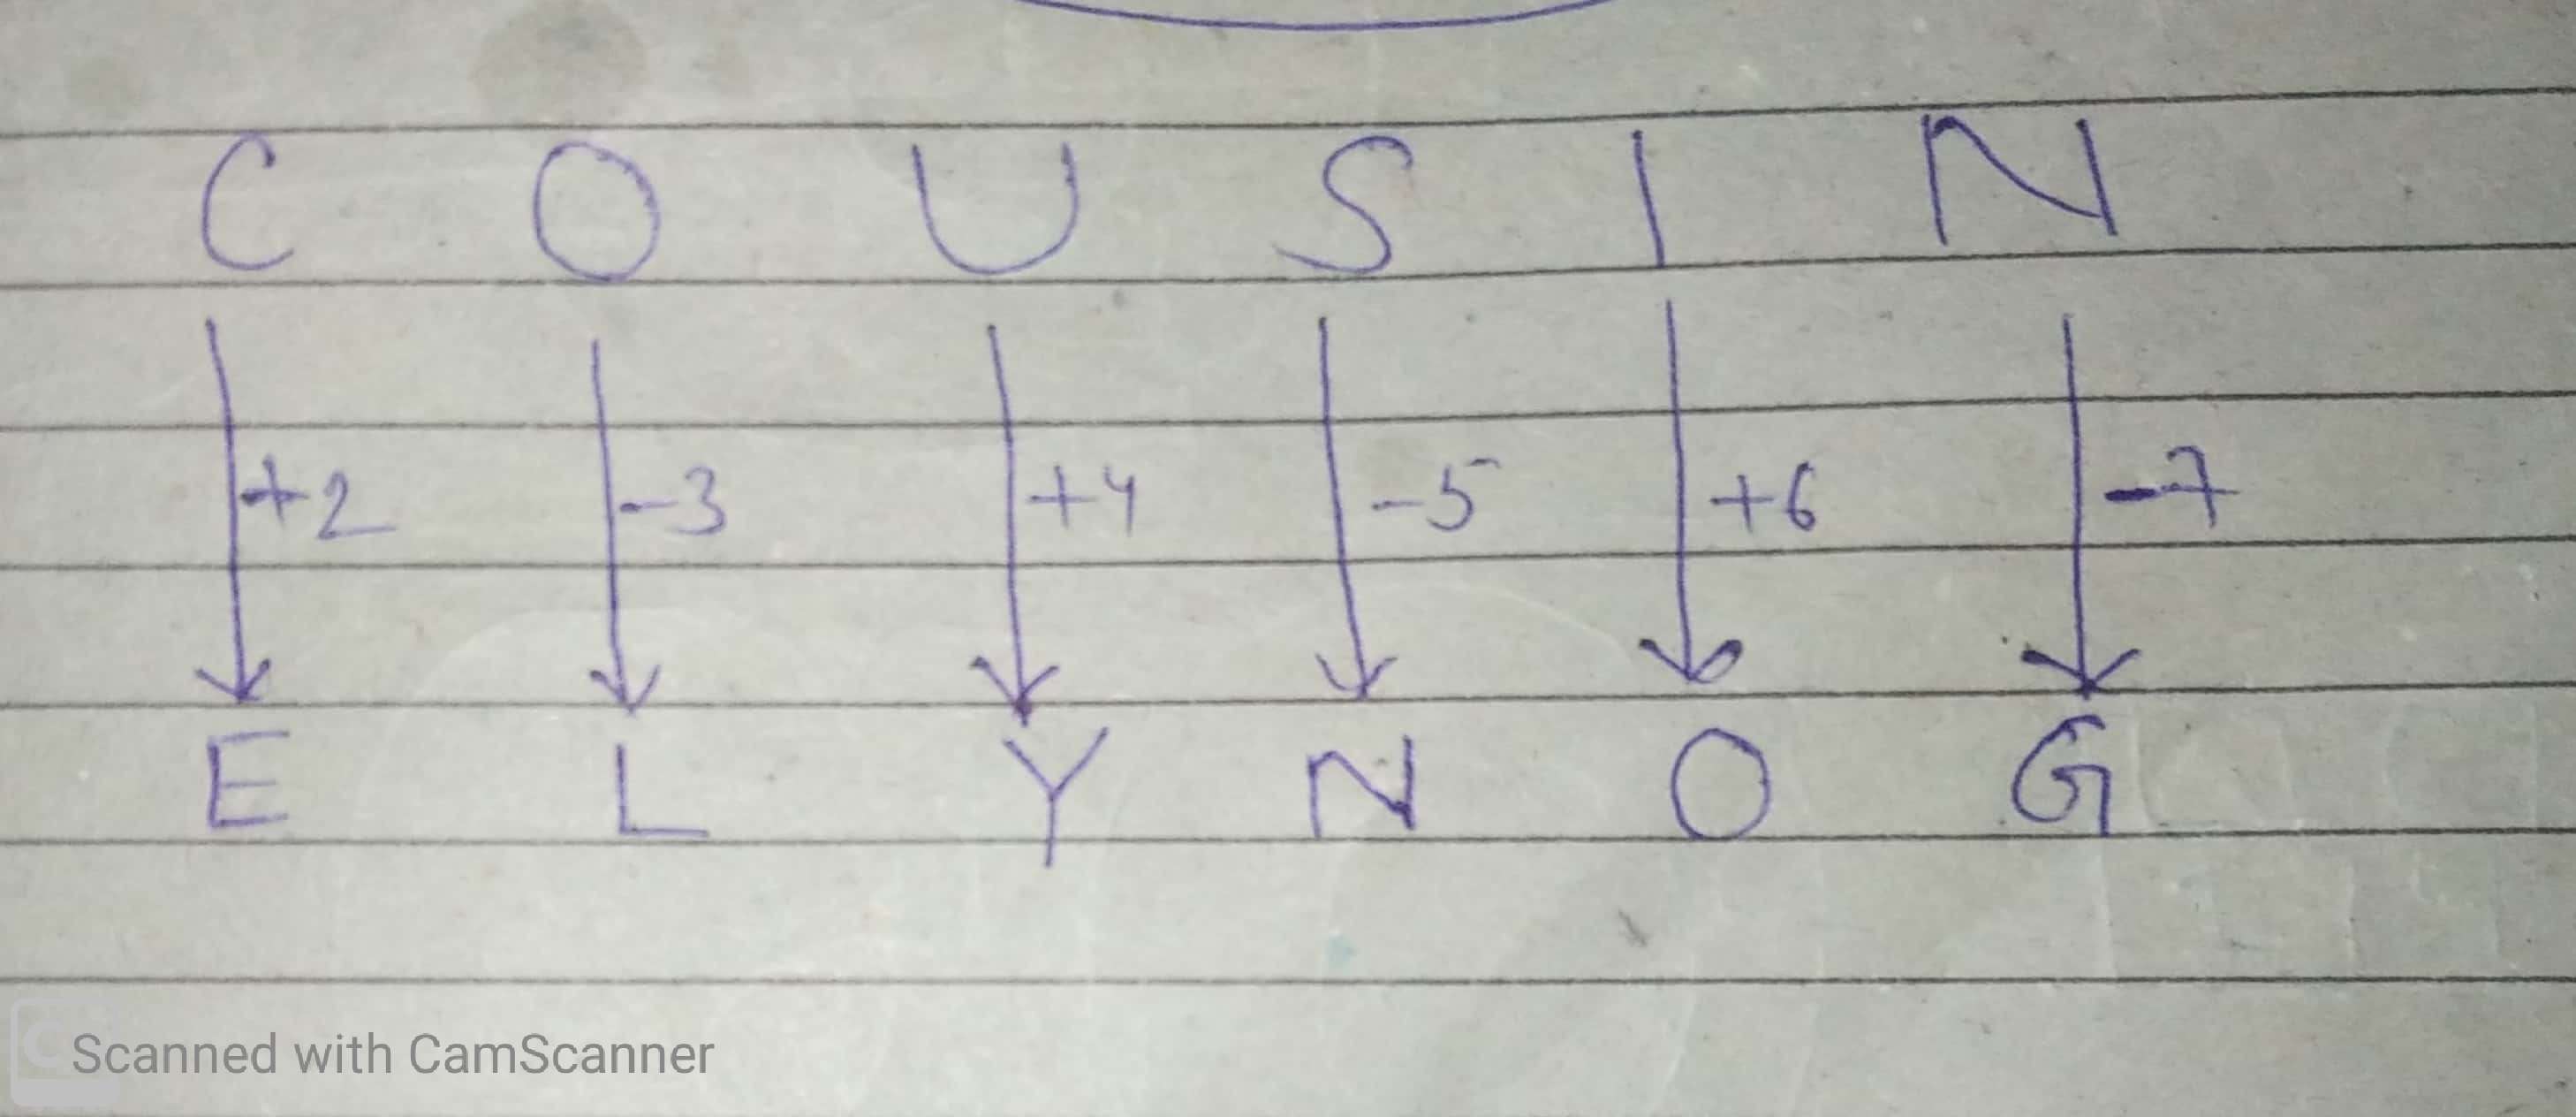 C O U S I N
+2 -3 +4 -5 +6 -7
E L Y N O G
Scanned with CamScanner